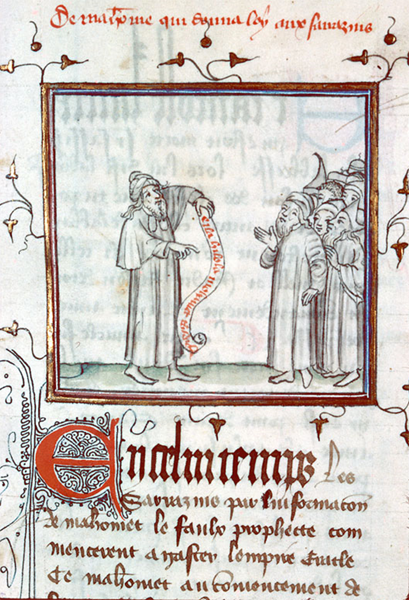 De mahom̄e qui donna loy aux sarazins
En celui temps Les
Sarrazins par linformacōn
de mahomet le faulx prophecte com
mencerent a gaster lempire Eracle
Ce mahomet au comencement de